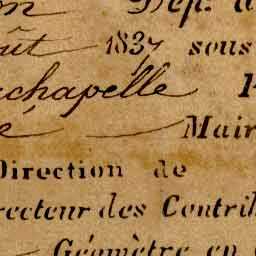 on Dép. d
oût 1837 sous
chapelle
é — Mair
Direction de
recteur des Contrib
Géomètre en